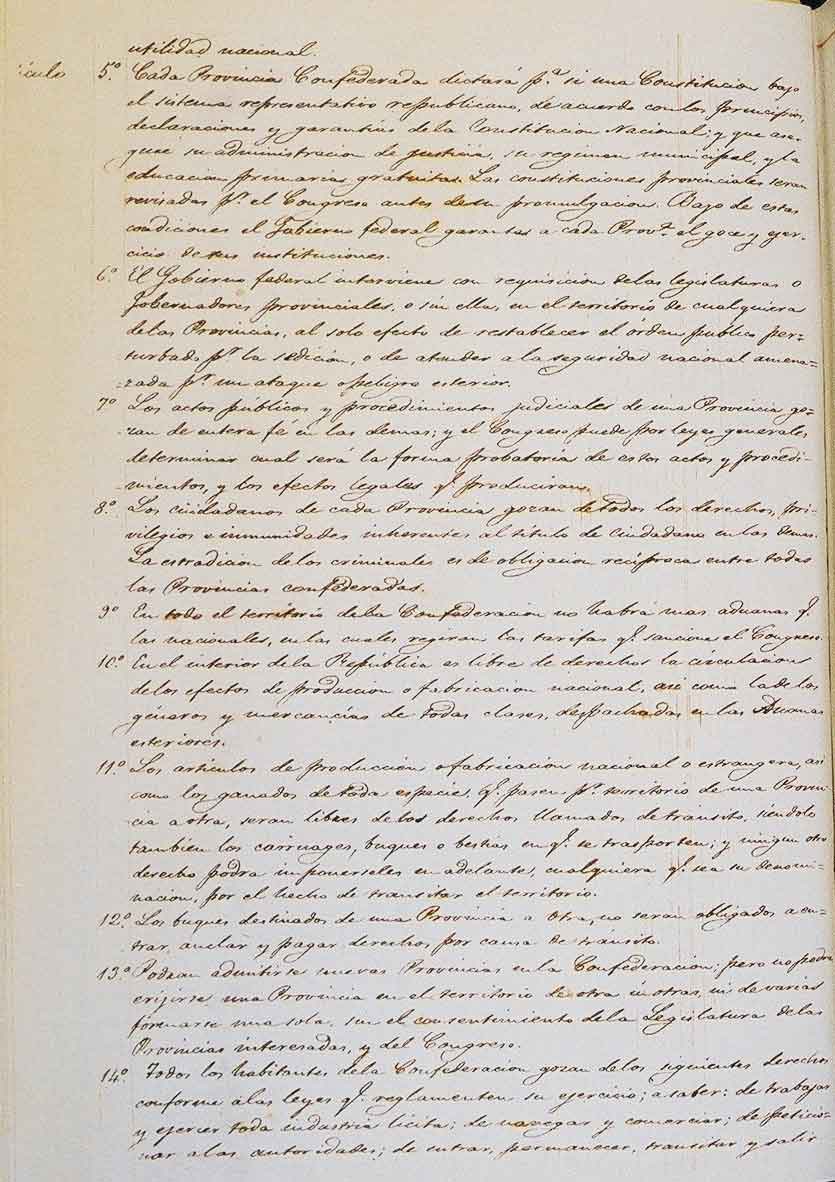 utilidad nacional.
ículo 5.º Cada Provincia Confederada dictará p.ª si una Constitucion bajo
el sistema representativo republicano, de acuerdo con los principios,
declaraciones y garantías de la Constitucion Nacional; y que ase-
gure su administracion de justicia, su regimen municipal, y la
educacion primaria gratuita. Las constituciones provinciales seran
revisadas p.r el Congreso antes de su promulgacion. Bajo de estas
condiciones el Gobierno federal garante a cada Prov.ª el goce y ejer-
cicio de sus instituciones.
6.º El Gobierno federal interviene con requisicion de las legislaturas o
Gobernadores provinciales, o sin ella, en el territorio de cualquiera
de las Provincias, al solo efecto de restablecer el orden publico per-
turbado p.r la sedicion, o de atender a la seguridad nacional amena=
=zada p.r un ataque o peligro esterior.
7.º Los actos públicos y procedimientos judiciales de una Provincia go=
zan de entera fé en las demas; y el Congreso puede por leyes generales
determinar cual será la forma probatoria de estos actos y procedi-
mientos, y los efectos legales q.e produciran.
8.º Los ciudadanos de cada Provincia gozan de todos los derechos, pri-
vilegios e inmunidades inherentes al título de ciudadano en las demas.
La estradicion de los criminales es de obligacion recíproca entre todas
las Provincias confederadas.
9.º En todo el territorio de la Confederacion no habrá mas aduanas q.e
las nacionales, en las cuales regiran las tarifas q.e sancione el Congreso.
10.º En el interior de la República es libre de derechos la circulacion
de los efectos de produccion o fabricacion nacional, así como la de los
géneros y mercancías de todas clases, despachadas en las Aduanas
esteriores.
11.º Los artículos de producción o fabricacion nacional o estrangera, asi
como los ganados de toda especie, q.e pasen p.r territorio de una Provin-
cia a otra, seran libres de los derechos llamados de tránsito, siendolo
tambien los carruages, buques o bestias en q.e se trasporten; y ningun otro
derecho podra imponerseles en adelante, cualquiera q.e sea su denomi-
nacion, por el hecho de transitar el territorio.
12.º Los buques destinados de una Provincia a otra, no seran obligados a en=
trar, anclar y pagar derechos por causa de tránsito.
13.º Podran admitirse nuevas Provincias en la Confederacion; pero no podra
erijirse una Provincia en el territorio de otra ú otras, ni de varias
formarse una sola, sin el consentimiento de la Legislatura de las
Provincias interesadas, y del Congreso.
14.º Todos los habitantes de la Confederacion gozan de los siguientes derechos
conforme á las leyes q.e reglamenten su ejercicio; a saber: de trabajar
y ejercer toda industria lícita; de navegar y comerciar; de peticio-
nar a las autoridades; de entrar, permanecer, transitar y salir